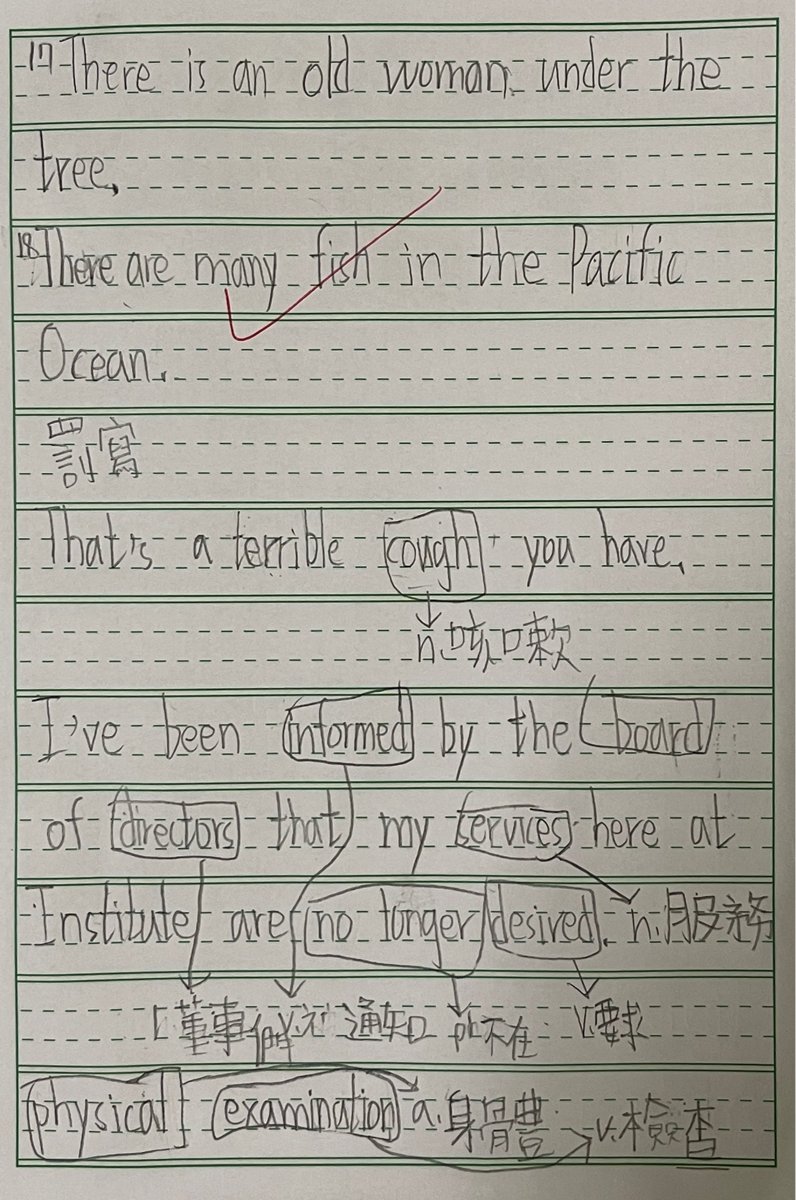 17 There is an old woman under the
tree.
18 There are many fish in the Pacific
Ocean.
罰寫
That's a terrible cough you have.
n.咳嗽
I've been informed by the board
of directors that my services here at
Institute are no longer desired. n.服務
董事們 v. 通知 ph不在 v.要求
physical examination a.身體 v.檢查